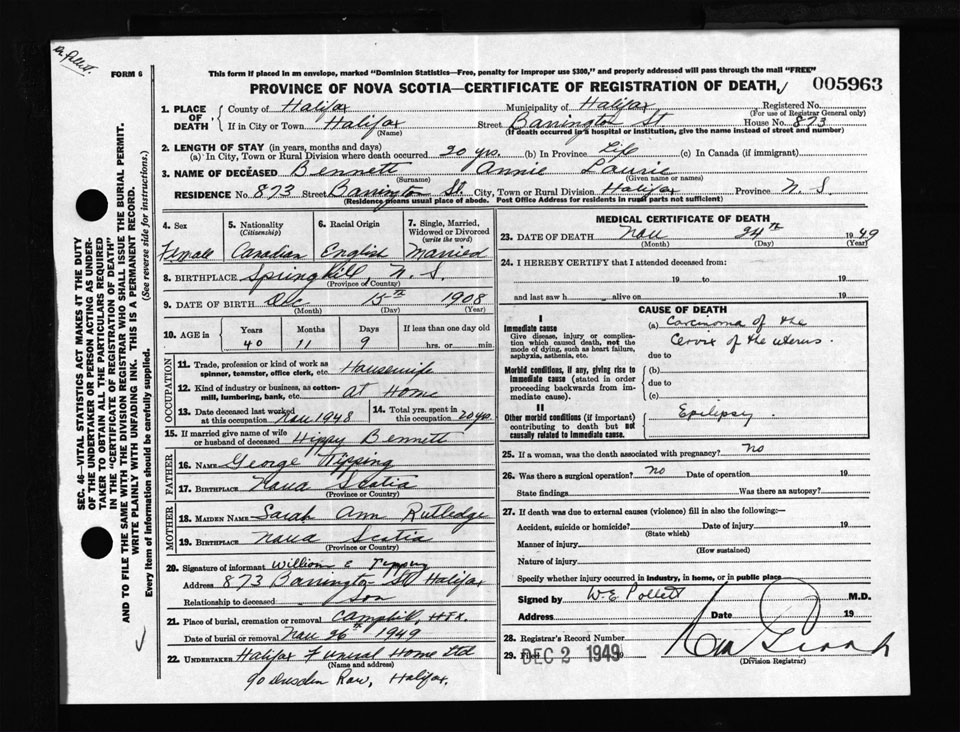 FORM 6
This form if placed in an envelope, marked "Dominion Statistics—Free, penalty for improper use $300," and properly addressed will pass through the mail "FREE"
PROVINCE OF NOVA SCOTIA—CERTIFICATE OF REGISTRATION OF DEATH, 005963
1. PLACE OF DEATH { County of Halifax Municipality of Halifax Registered No.
(For use of Registrar General only)
If in City or Town Halifax Street Barrington St House No. 873
(Name) (If death occurred in a hospital or institution, give the name instead of street and number)
2. LENGTH OF STAY (in years, months and days)
(a) In City, Town or Rural Division where death occurred 20 yrs. (b) In Province Life (c) In Canada (if immigrant)
3. NAME OF DECEASED Bennett Annie Laurie
(Surname) (Given name or names)
RESIDENCE No. 873 Street Barrington St. City, Town or Rural Division Halifax Province N. S.
(Residence means usual place of abode. Post Office Address for residents in rural parts not sufficient)
4. Sex 5. Nationality (Citizenship) 6. Racial Origin 7. Single, Married, Widowed or Divorced (write the word)
Female Canadian English Married
8. BIRTHPLACE Springhill N. S.
(Province of Country)
9. DATE OF BIRTH Dec 15th 1908
(Month) (Day) (Year)
10. AGE in Years Months Days If less than one day old
40 11 9 hrs. or min.
OCCUPATION
11. Trade, profession or kind of work as spinner, teamster, office clerk, etc. Housewife
12. Kind of industry or business, as cotton-mill, lumbering, bank, etc. at Home
13. Date deceased last worked at this occupation Nov 1948 14. Total yrs. spent in this occupation 20 yrs.
15. If married give name of wife or husband of deceased Hippy Bennett
FATHER
16. NAME George Tipping
17. BIRTHPLACE Nova Scotia
(Province or Country)
MOTHER
18. MAIDEN NAME Sarah Ann Rutledge
19. BIRTHPLACE Nova Scotia
(Province or Country)
20. Signature of informant William E Tipping
Address 873 Barrington St Halifax
Relationship to deceased Son
21. Place of burial, cremation or removal Camphill, Hfx.
Date of burial or removal Nov 26th 1949
22. UNDERTAKER Halifax Funeral Home Ltd
(Name and address)
90 Dresden Row, Halifax.
MEDICAL CERTIFICATE OF DEATH
23. DATE OF DEATH Nov 24th 1949
(Month) (Day) (Year)
24. I HEREBY CERTIFY that I attended deceased from:
19 to 19
and last saw h alive on 19
CAUSE OF DEATH
I
Immediate cause
Give disease, injury or complication which caused death, not the mode of dying, such as heart failure, asphyxia, asthenia, etc.
(a) Carcinoma of the
Cervix of the uterus.
due to
Morbid conditions, if any, giving rise to immediate cause (stated in order proceeding backwards from immediate cause).
(b)
due to
(c)
II
Other morbid conditions (if important) contributing to death but not causally related to immediate cause.
Epilepsy.
25. If a woman, was the death associated with pregnancy? No
26. Was there a surgical operation? No Date of operation 19
State findings Was there an autopsy?
27. If death was due to external causes (violence) fill in also the following:—
Accident, suicide or homicide? Date of injury 19
(State which)
Manner of injury
(How sustained)
Nature of injury
Specify whether injury occurred in industry, in home, or in public place
Signed by W.E Pollett M.D.
Address Date 19
28. Registrar's Record Number
29. DEC 2 1949
(Division Registrar)
SEC. 46—VITAL STATISTICS ACT MAKES IT THE DUTY
OF THE UNDERTAKER OR PERSON ACTING AS UNDER-
TAKER TO OBTAIN ALL THE PARTICULARS REQUIRED
IN THE "CERTIFICATE OF REGISTRATION OF DEATH"
AND TO FILE THE SAME WITH THE DIVISION REGISTRAR WHO SHALL ISSUE THE BURIAL PERMIT.
WRITE PLAINLY WITH UNFADING INK. THIS IS A PERMANENT RECORD.
Every item of information should be carefully supplied. (See reverse side for instructions.)